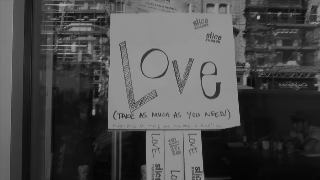 slice
slice
Love
(TAKE AS MUCH AS YOU NEED!)
LOVE
slice
LOVE
LOVE
slice